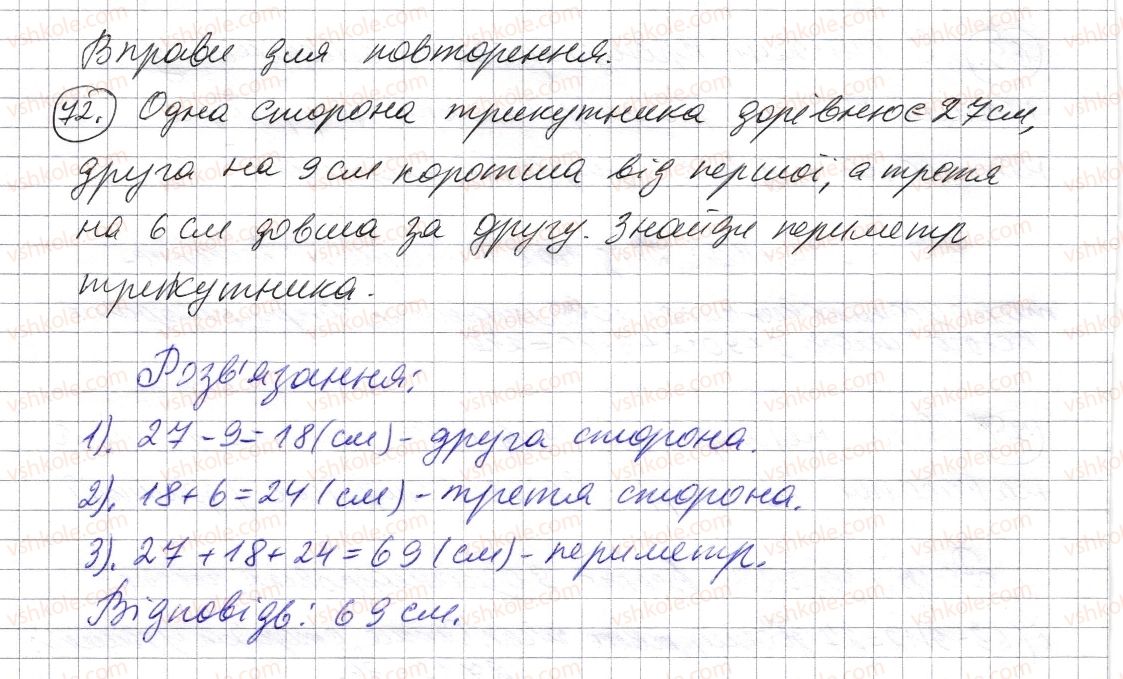 Вправи для повторення.
72. Одна сторона трикутника дорівнює 27 см,
друга на 9 см коротша від першої, а третя
на 6 см довша за другу. Знайди периметр
трикутника.
Розв'язання:
1). 27 - 9 = 18 (см) - друга сторона.
2). 18 + 6 = 24 (см) - третя сторона.
3). 27 + 18 + 24 = 69 (см) - периметр.
Відповідь: 69 см.
vshkole.com